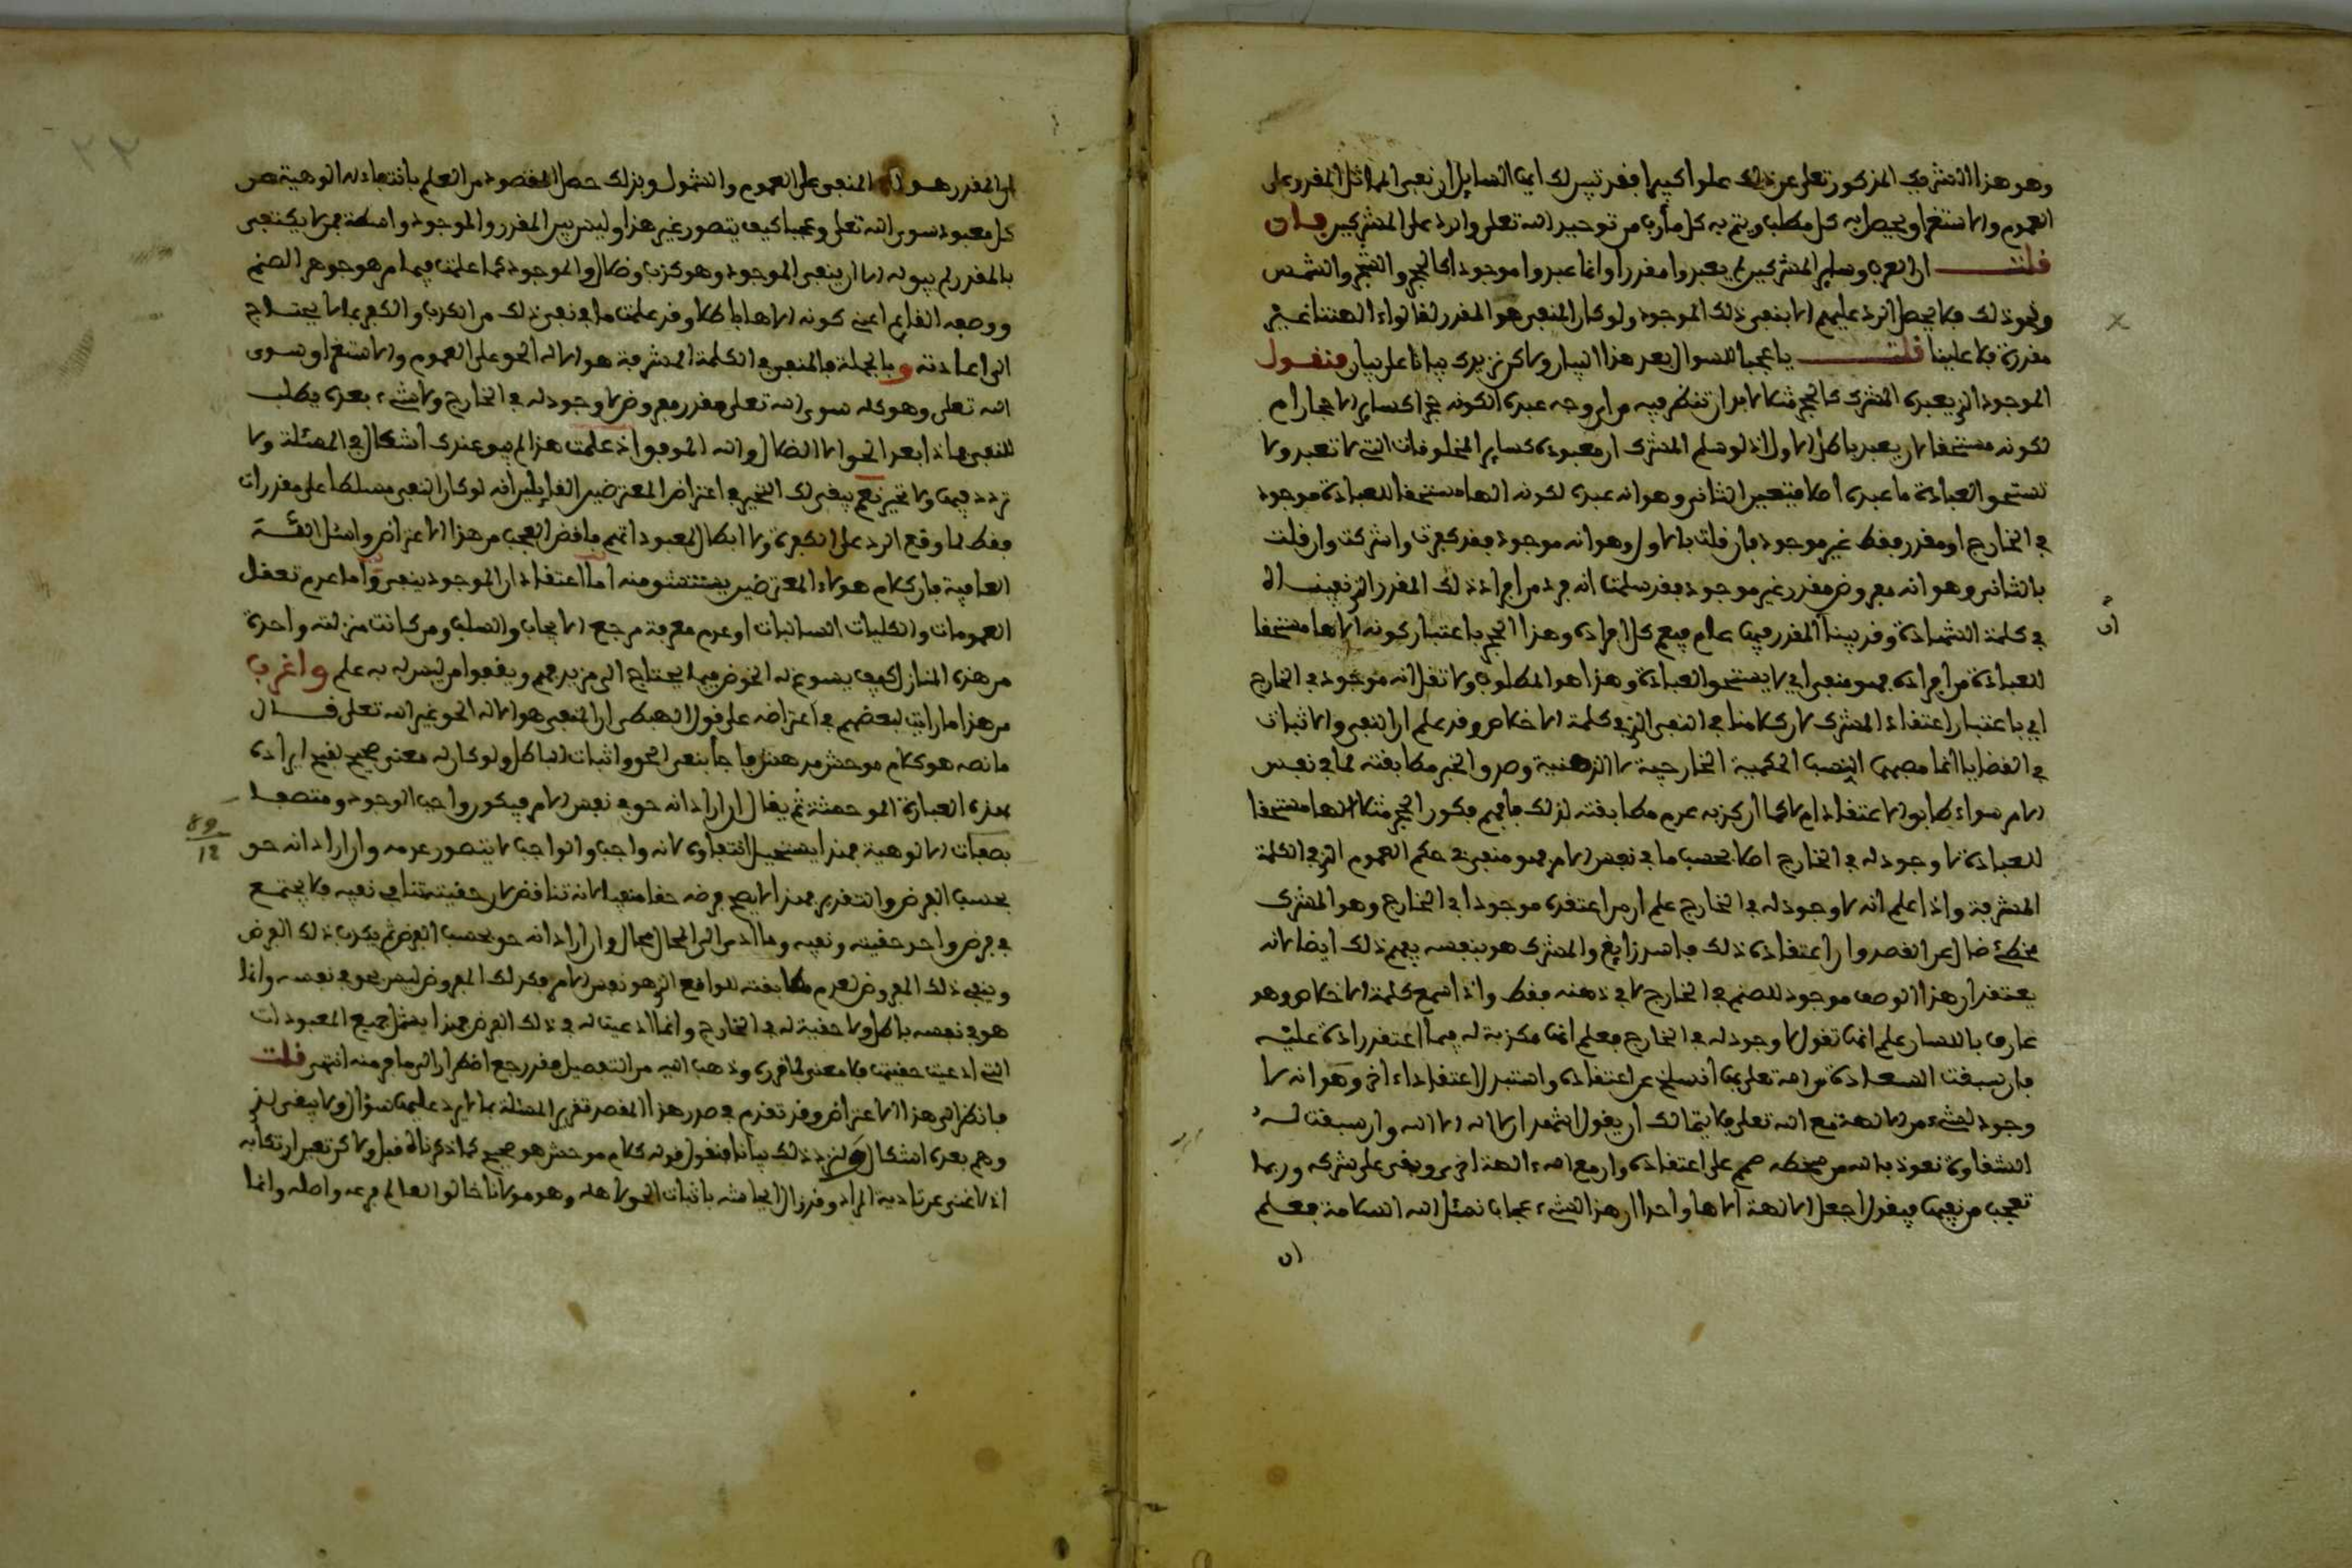 وهو هذا الشريك المذكور تعلى عن ذلك علوا كبيرا فقد تبين لك ايها السايل ان نفي المماثل المقدر على
العموم والاستغراق يحصل به كل مطلب ويتم به كل مأرب من توحيد الله تعلى والرد على المشركين فان
قلت ان العرب وساير المشركين لم يعبدوا مقدرا وانما عبدوا موجودا كالحجر والشجر والشمس
ونحو ذلك فلا يحصل الرد عليهم الا بنفي ذلك الموجود ولو كان المنفي هو المقدر لقالوا الهتنا غير
مقدرة فلا علينا قلت يا عجبا للسوال بعد هذا البيان ولاكن نزيدك بيانا على بيان فنقول
الموجود الذي عبده المشرك كالحجر مثلا لا بد ان تنظر فيه من اي وجه عبده الكونه حجرا كساير الاحجار ام
لكونه مستحقا لان يعبد باطل الاول اذ لو سلم المشرك ان معبوده كساير المخلوقات التي لا تعبد ولا
تستحق العبادة ما عبده اصلا فتعين الثاني وهو انه عبده لكونه الها مستحقا للعبادة موجود
في الخارج او مقدر فقط غير موجود فان قلت بالاول وهو انه موجود فقد كفرت واشركت وان قلت
بالثاني وهو انه مفروض مقدر غير موجود فقد سلمت انه فرد من افراد ذلك المقدر الذي نفيناه
في كلمة الشهادة وقد بينا ان المقدر فيها عام فيعم كل افراده وهذا الحجر باعتبار كونه الاها مستحقا
للعبادة من افراده فهو منفي اي لا يستحق العبادة وهذا هو المطلوب ولا تقل انه موجود في الخارج
اي باعتبار اعتقاد المشرك لان كلامنا في النفي الذي في كلمة الاخلاص وقد علم ان النفي والاثبات
في القضايا انما مصبهما النسب الحكمية الخارجية لا الذهنية وصدق الخبر مطابقته لما في نفس
الامر سواء طابق الاعتقاد ام لا كما ان كذبه عدم مطابقته لذلك فافهم فكون الحجر مثلا الها مستحقا
للعبادة لا وجود له في الخارج اصلا بحسب ما في نفس الامر فهو منفي في حكم العموم الذي في الكلمة
المشرفة واذا علم انه لا وجود له في الخارج علم ان من اعتقده موجودا في الخارج وهو المشرك
مخطئ ضال عن القصد وان اعتقاده ذلك فاسد زايغ والمشرك هو بنفسه يفهم ذلك ايضا لانه
يعتقد ان هذا الوصف موجود للصنم في الخارج لا في ذهنه فقط واذا سمع كلمة الاخلاص وهو
عارف باللسان علم انها تقول لا وجود له في الخارج فعلم انها مكذبة له فيما اعتقد رادة عليه
فان سبقت السعادة من الله تعلى بها انسلخ عن اعتقاده واستبدل اعتقادا اخر وهو انه لا
وجود لشيء من الالهة مع الله تعلى فلا يتمالك ان يقول اشهد ان لا اله الا الله وان سبقت له
الشقاوة نعوذ بالله من سخطه صمم على اعتقاده وان مع الله الهة اخرى وبقي على شركه وربما
تعجب من نفيها فيقول اجعل الالهة الاها واحدا ان هذا لشيء عجاب نسئل الله السلامة فعلم
ان
ان المقدر هو المنفي على العموم والشمول وبذلك حصل المقصود من العلم بانتفاء الالوهية عن
كل معبود سوى الله تعلى وعجبا كيف يتصور غير هذا وليس بين المقدر والموجود واسطة فمن لا يكتفي
بالمقدر لم يبق له الا ان ينفي الموجود وهو كذب وضلال والموجود كما علمت فيما مر هو جوهر الصنم
ووصفه القايم اعني كونه الاها باطلا وقد علمت ما في نفي ذلك من الكذب والكفر بما لا يحتاج
الى اعادته وبالجملة فالمنفي في الكلمة المشرفة هو الاله الحق على العموم والاستغراق سوى
الله تعلى وهو كله سوى الله تعلى مقدر مفروض لا وجود له في الخارج ولا شيء بعده يطلب
للنفي فماذا بعد الحق الا الضلال والله الموفق اذ علمت هذا لم يبق عندك اشكال في المسئلة ولا
تردد فيها ولا تحير نعم يبقى لك التحير في اعتراض المعترضين القايلين انه لو كان النفي مسلطا على مقدرات
فقط لما وقع الرد على الكفرة ولا ابطال لمعبوداتهم فاقض العجب من هذا الاعتراض واسئل الله
العافية فان كلام هولاء المعترضين يستنشق منه اما اعتقاد ان الموجود ينفى واما عدم تعقل
العمومات والكليات السالبات او عدم معرفة مرجع الايجاب والسلب ومن كانت منزلته واحدة
من هذه المنازل كيف يسوغ له الخوض فيما يحتاج الى مزيد فهم ويقفوا من ليس له به علم واغرب
من هذا ما رايت لبعضهم في اعتراضه على قول الهبطي ان المنفي هو الاله الحق غير الله تعلى قال
ما نصه هو كلام موحش مدهش فاجأ بنفي الحق واثبات الباطل ولو كان له معنى صحيح لقبح ايراده
بهذه العبارة الموحشة ثم يقال ان اراد انه حق في نفس الامر فيكون واجب الوجود ومتصفا
بصفات الالوهية فهذا يستحيل انتفاؤه لانه واجب والواجب لا يتصور عدمه وان اراد انه حق
بحسب الفرض والتقدير فهذا لا يصح فرضه حقا منفيا لانه تناقض لان حقيته تنافي نفيه فلا يجتمع
في فرض واحد حقيته ونفيه وما ادى الى المحال محال وان اراد انه حق بحسب الفرض ثم يكذب ذلك الفرض
وينفى ذلك المفروض لعدم مطابقته للواقع الذي هو نفس الامر فكذلك المفروض ليس بحق في نفسه وانما
هو في نفسه باطل ولا حقية له في الخارج وانما ادعيت له في ذلك الفرض فهذا يشمل جميع المعبودات
التي ادعيت حقيتها فلا معنى لما قرره وذهب اليه من التفصيل فقد رجع اضطرارا الى ما فر منه انتهى قلت
فانظر الى هذا الاعتراض وقد تقدم في صدر هذا المقصد تقرير المسئلة بما لا يرد عليها سؤال ولا يبقى لذي
وهم بعده اشكال ولنزد ذلك بيانا فنقول قوله كلام موحش هو صحيح كما ذكرناه قبل ولاكن تعين ارتكابه
اذ لا غنى عن تادية المراد وقد زال ايحاشه باثبات الحق لاهله وهو مولانا خالق العالم فرعه واصله وانما
89
12